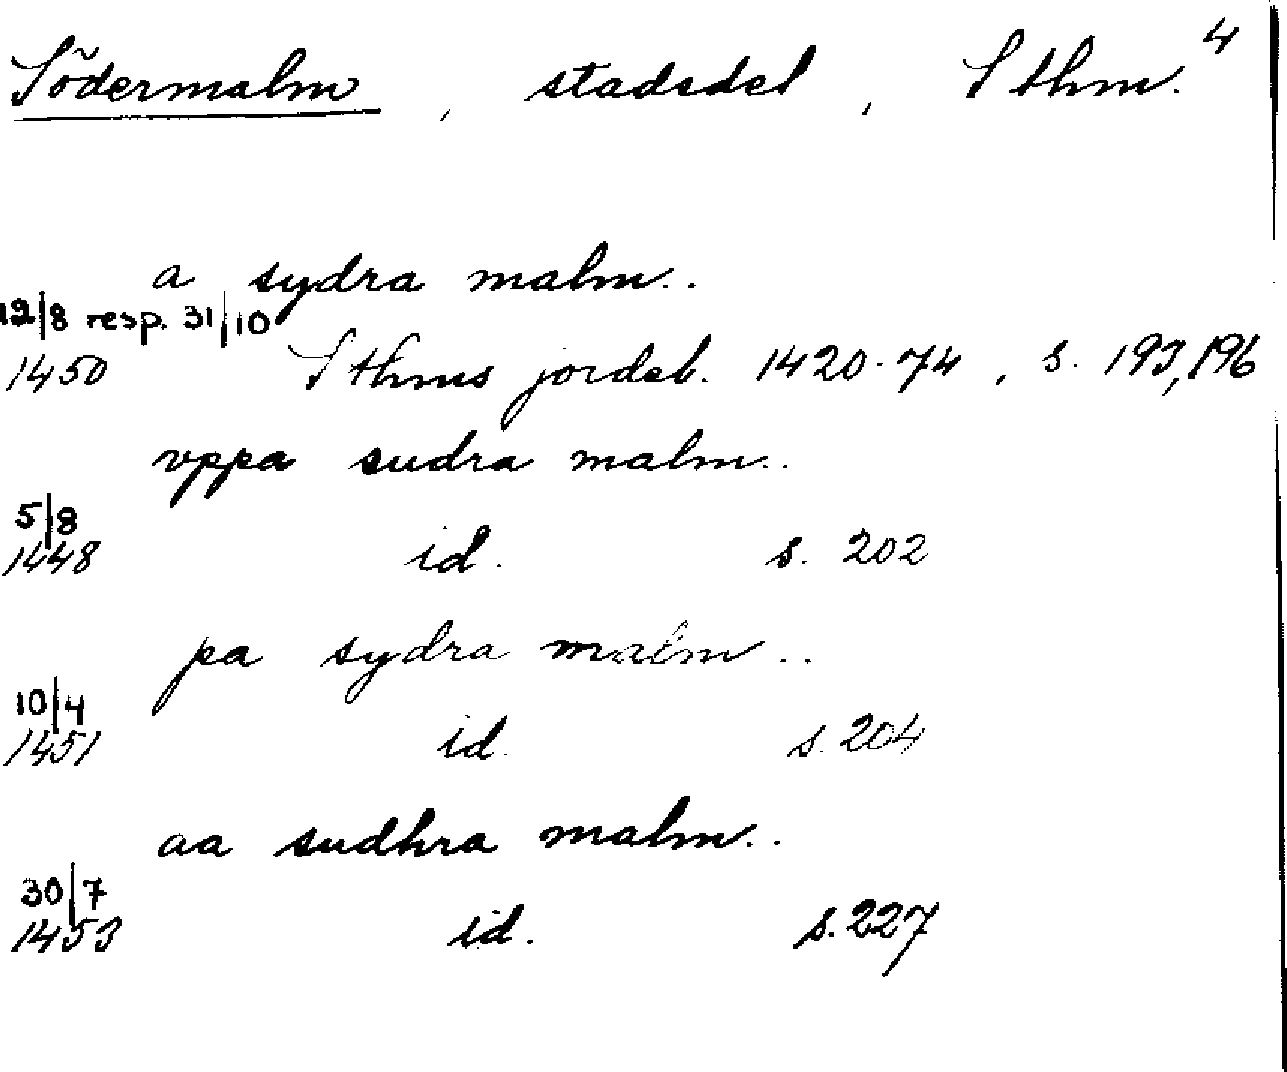 Södermalm, stadsdel, Sthm. 4
a sydra malm..
12/8 resp. 31/10
1450 Sthms jordeb. 1420-74, s. 193, 196
vppa sudra malm..
5/8
1448 id. s. 202
pa sydra malm..
10/4
1451 id. s. 204
aa sudhra malm..
30/7
1453 id. s. 227